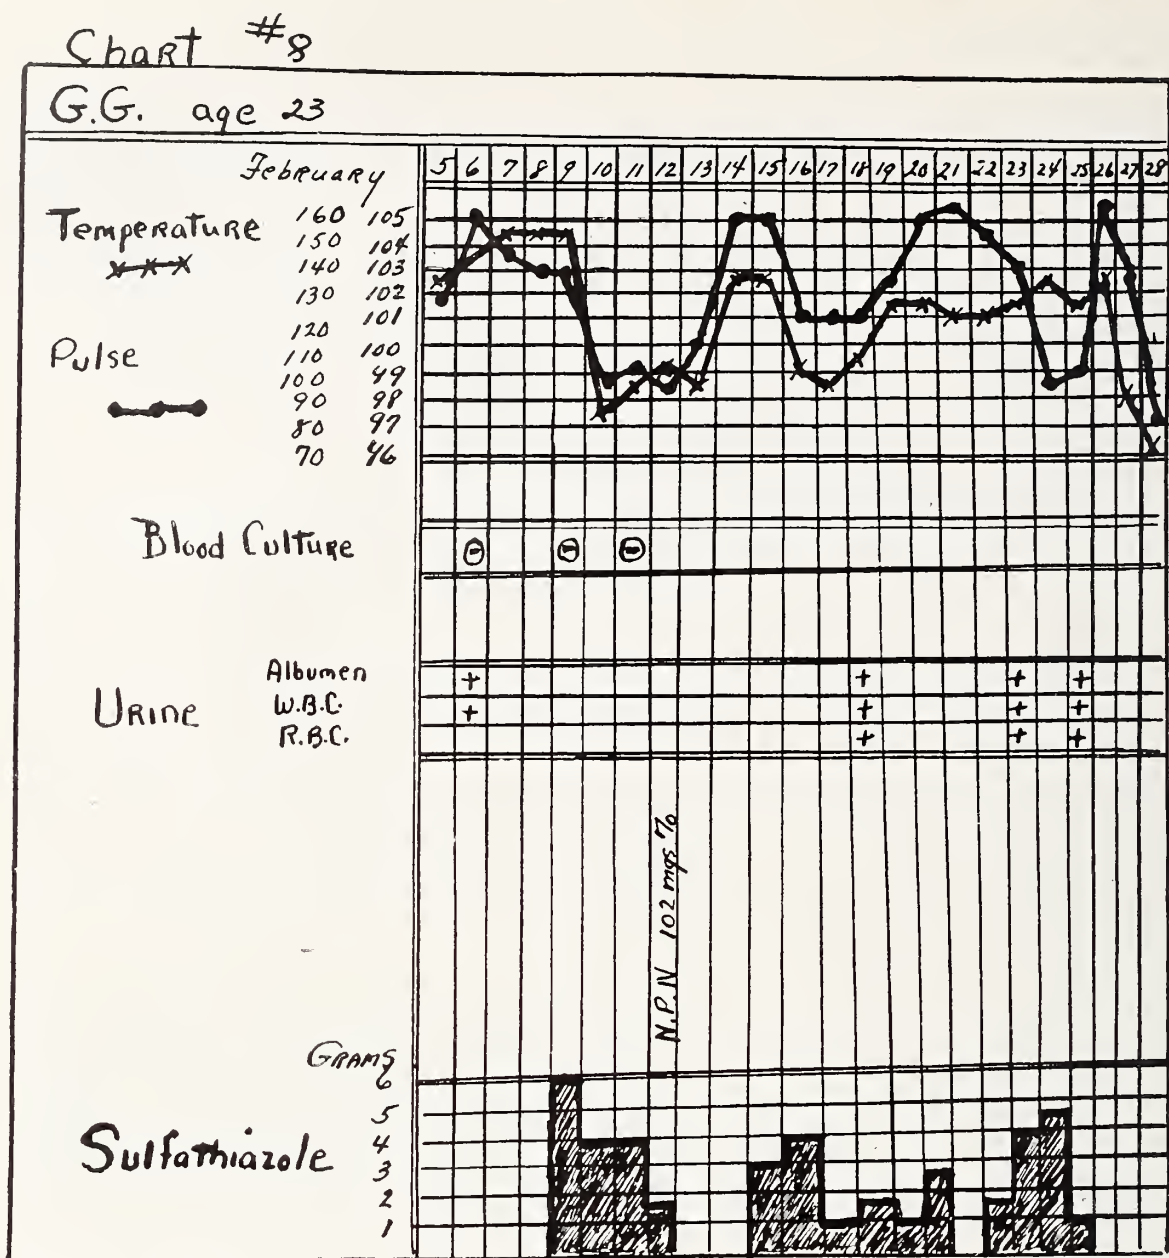 Chart #8
G.G. age 23
February 5 6 7 8 9 10 11 12 13 14 15 16 17 18 19 20 21 22 23 24 25 26 27 28
Temperature 160 105
150 104
x-x-x 140 103
130 102
120 101
Pulse 110 100
100 99
90 98
80 97
70 96
Blood Culture - - -
Albumen + + + +
Urine W.B.C. + + + +
R.B.C. + + +
N.P.N 102 mgs %
Grams
6
5
Sulfathiazole 4
3
2
1